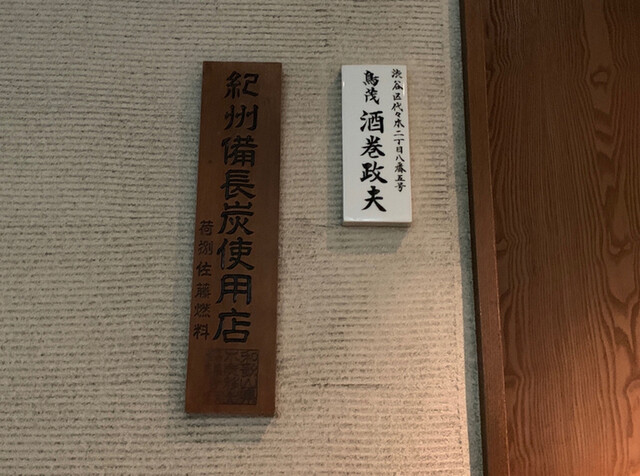 渋谷区代々木二丁目八番五号
鳥茂 酒巻政夫
紀州備長炭使用店
荷捌 佐藤燃料